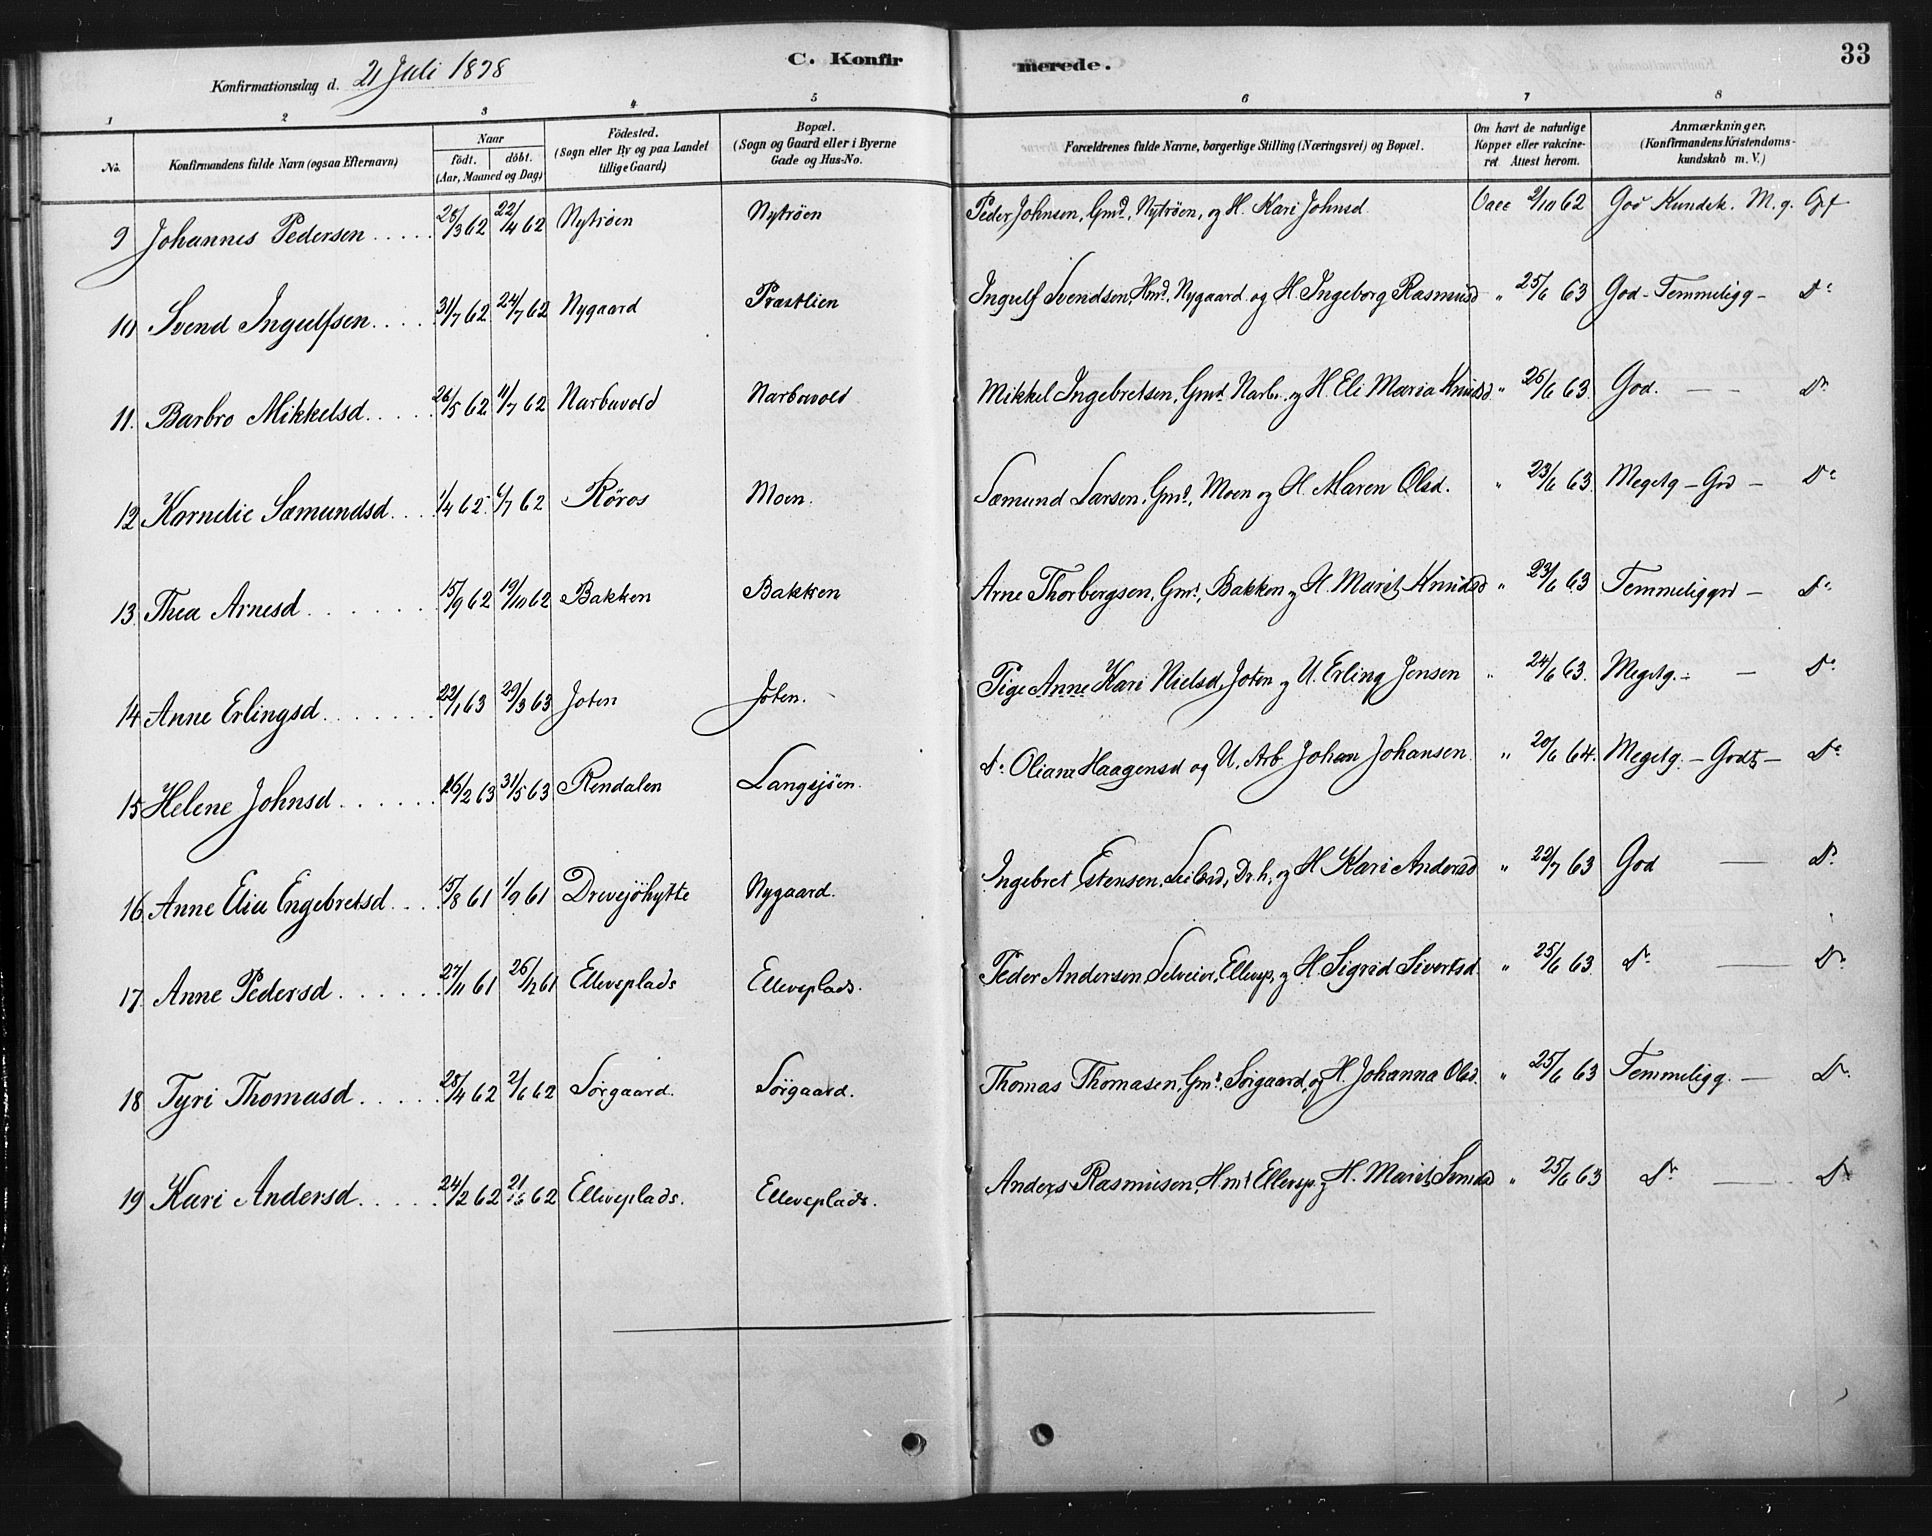 33
C. Konfirmerede.
Konfirmationsdag d. 21 Juli 1878
1 2 3 4 5 6 7 8
No. Konfirmandens fulde Navn (ogsaa Efternavn) Naar födt. döbt. (Aar, Maaned og Dag) Födested. (Sogn eller By og paa Landet tillige Gaard) Bopæl. (Sogn og Gaard eller i Byerne Gade og Hus-No. Forældrenes fulde Navne, borgerlige Stilling (Næringsvei) og Bopæl. Om havt de naturlige Kopper eller vakcineret Attest herom. Anmærkninger. (Konfirmandens Kristendomskundskab m. V.)
9 Johannes Pedersen 28/3 62 22/4 62 Nytröen Nytröen Peder Johnsen, Gmd, Nytröen, og H. Kari Johnsd. Vacc 2/10 62 God Kundsk. M. g.
10 Svend Ingulfsen 31/7 62 24/7 62 Nygaard Præstlien Ingulf Svendsen, Hmd, Nygaard og H. Ingeborg Rasmusd " 25/6 63 God - Temmeligg - Do
11. Barbro Mikkelsd. 26/5 62 11/7 62 Narbuvold Narbuvold Mikkel Ingebretsen, Gmd. Narb. og H. Eli Maria Knudsd " 26/6 63. God. — — Do
12 Kornelie Sæmundsd 1/4 62 6/7 62 Röros Moen. Sæmund Larsen, Gmd, Moen og H. Maren Olsd. " 23/6 63. Megetg - God - Do
13. Thea Arnesd 15/9 62 19/10 62 Bakken Bakken Arne Thorbergsen, Gmd, Bakken og H. Marit Knudsd " 23/6 63 Temmeliggod — Do
14 Anne Erlingsd 22/1 63 29/3 63 Joten Joten. Pige Anne Kari Nielsd, Joten og U. Erling Jensen " 24/6 63. Megetg. — — Do
15 Helene Johnsd 16/2 63 31/5 63 Rendalen Langsjöen. Do Oliane Haagensd og U. Arb. Johan Johansen. " 20/6 64. Megetg. - Godt - Do
16 Anne Elie Engebretsd 15/8 61 1/9 61 Drevsjöhytte Nygaard. Ingebret Estensen, Dr. h, og H. Kari Andersd " 22/7 63 God — Do
17. Anne Pedersd 27/11 61 26/12 61 Elleveplads Elleveplads. Peder Andersen Selveier, Ellevp, og H. Sigrid Sivertsd. " 25/6 63. Do — Do
18 Tyri Thomasd 28/4 62 2/6 62 Sörgaard. Sörgaard. Thomas Thomasen, Gmd, Sörgaard, og H. Johanna Olsd. " 25/6 63 Temmeligg. — Do
19 Kari Andersd 24/2 62 21/6 62 Elleveplads. Elleveplads. Anders Rasmusen, Hmd Ellevp. og H. Marit " 25/6 63 Do — Do